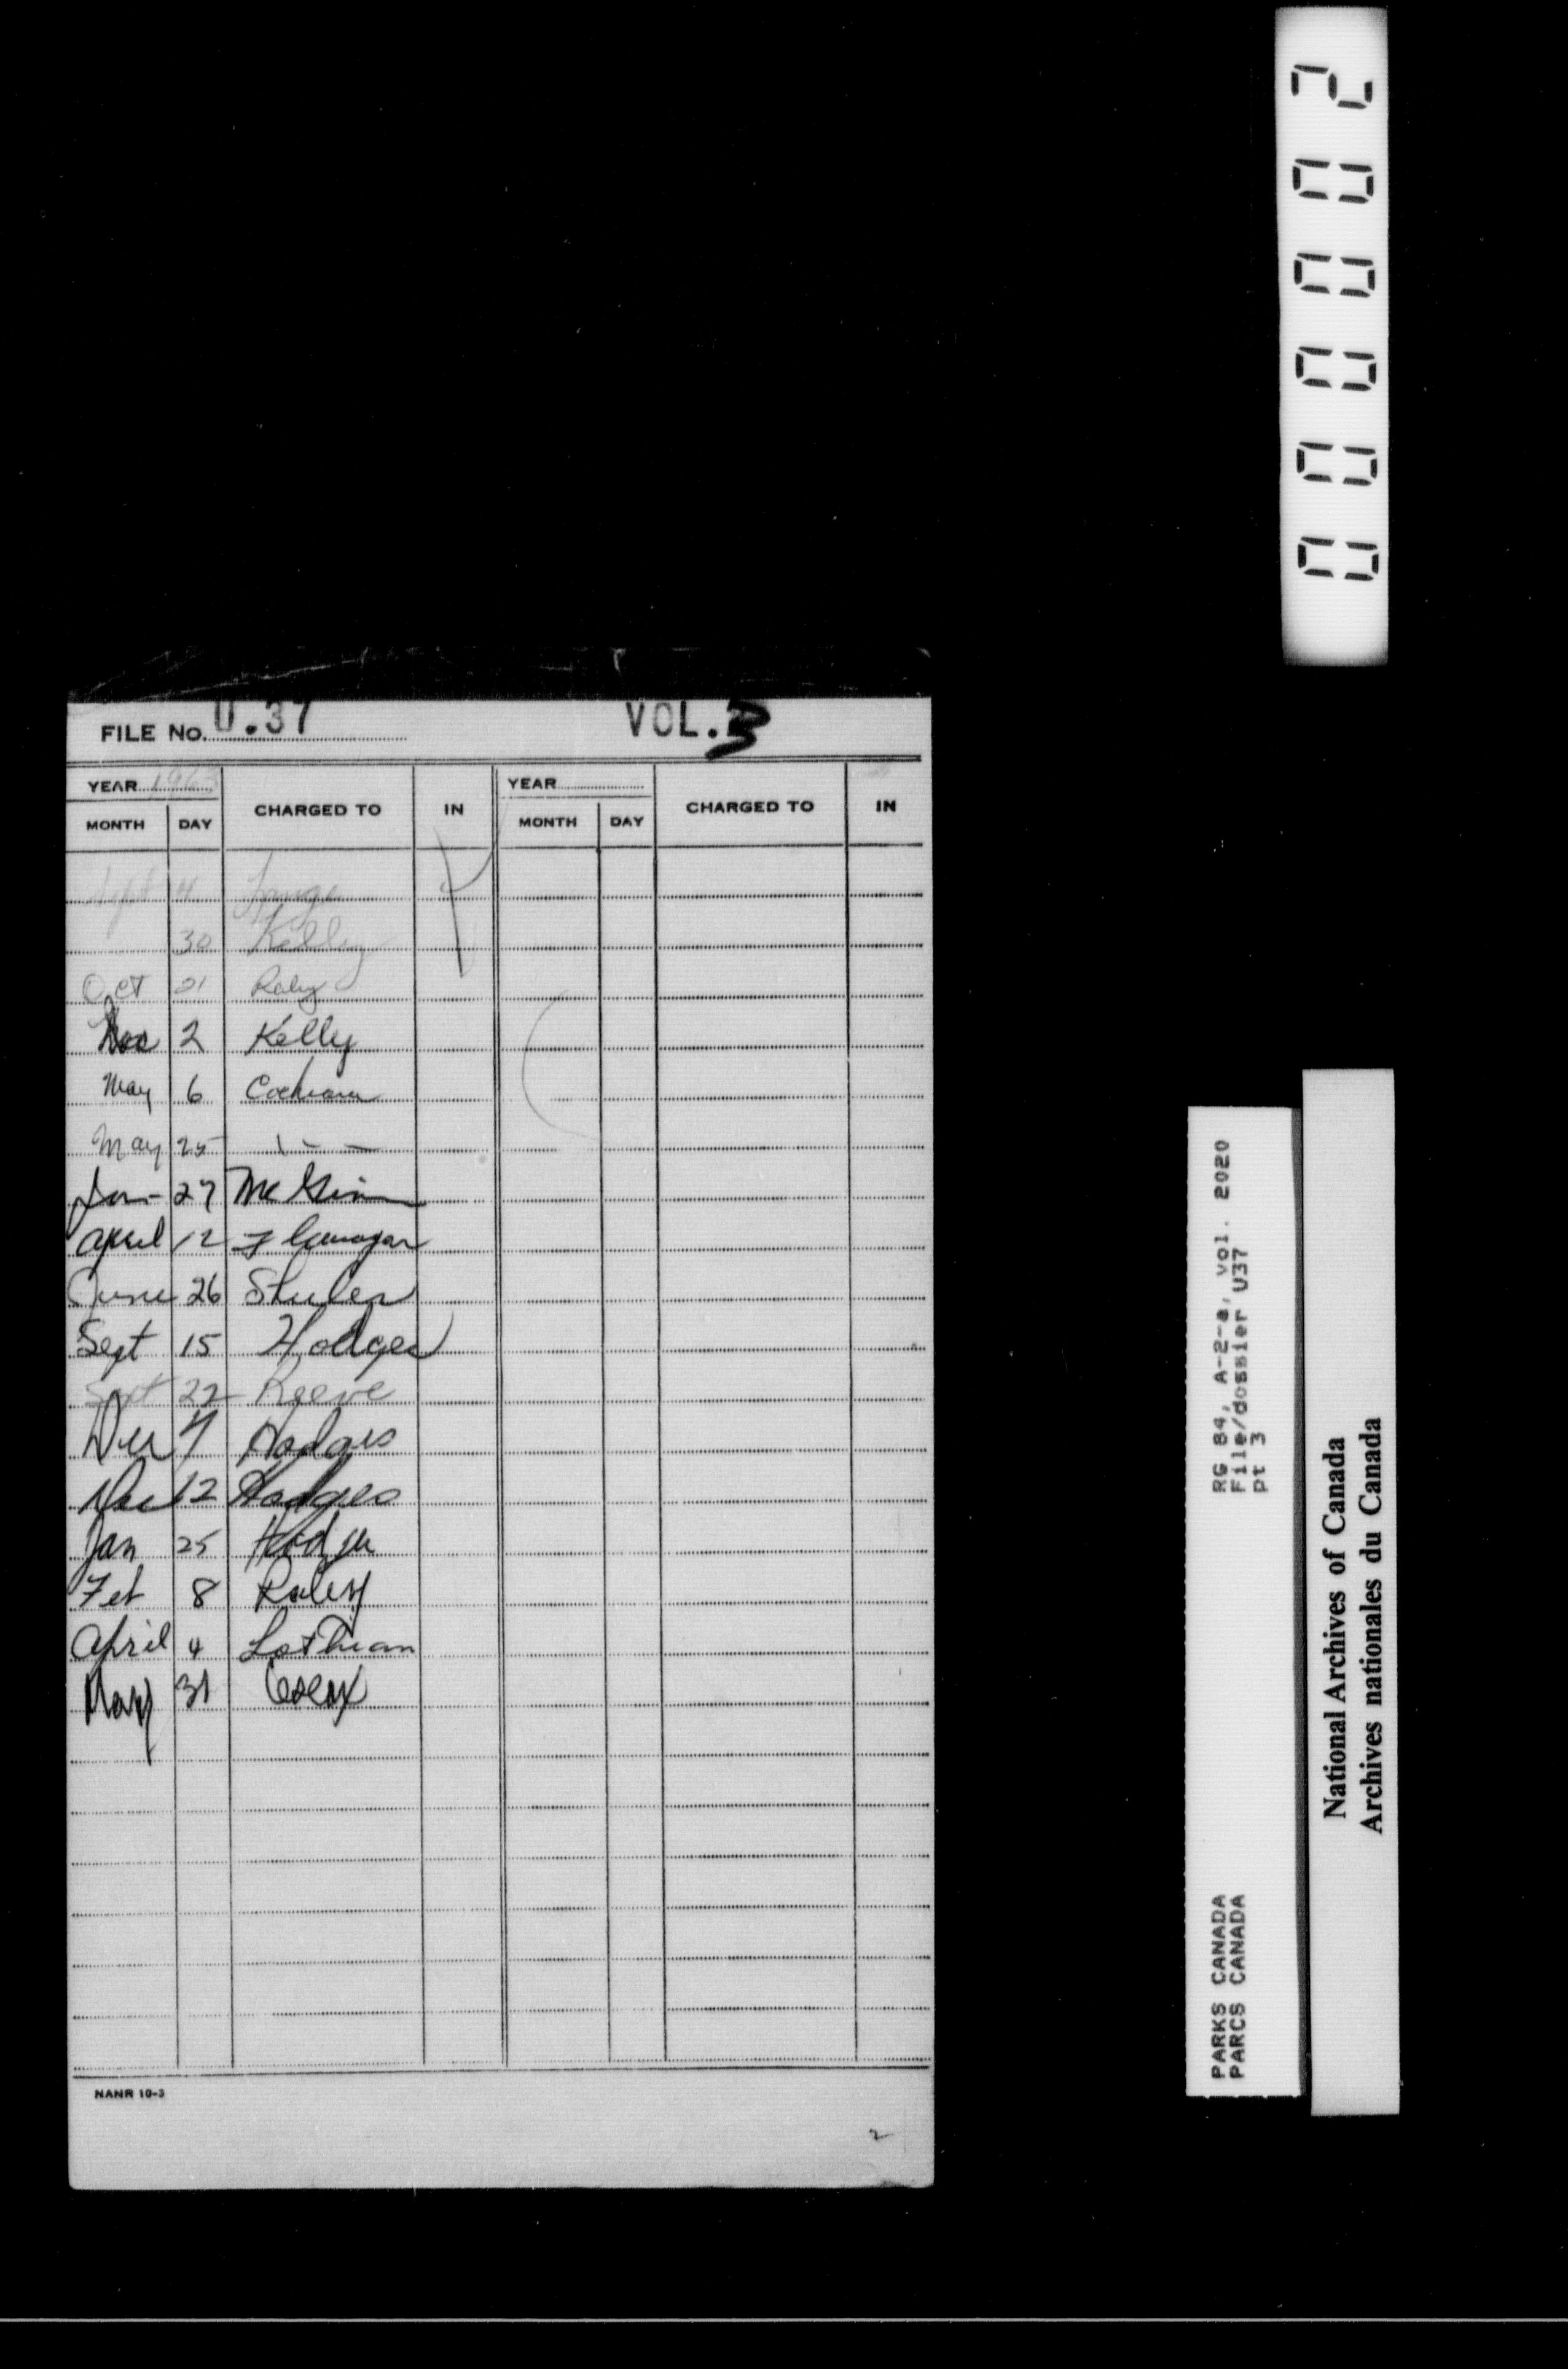 000002
FILE No. U.37 VOL. 3
YEAR 1963 CHARGED TO IN YEAR CHARGED TO IN
MONTH DAY MONTH DAY
Sept 4
30 Kelly
Oct 21 Raley
2 Kelly
May 6 Cochrane
May 25 \ - -
27
April 12 Flanagan
June 26 Shuler
Sept 15 Hodges
Sept 22 Reeve
Dec 7 Hodges
Dec 12 Hodges
Jan 25 Hodges
Feb 8 Raley
April 4 Lothian
May 31
NANR 10-3
2
RG 84, A-2-a, vol. 2020
File/dossier U37
pt 3
PARKS CANADA
PARCS CANADA
National Archives of Canada
Archives nationales du Canada